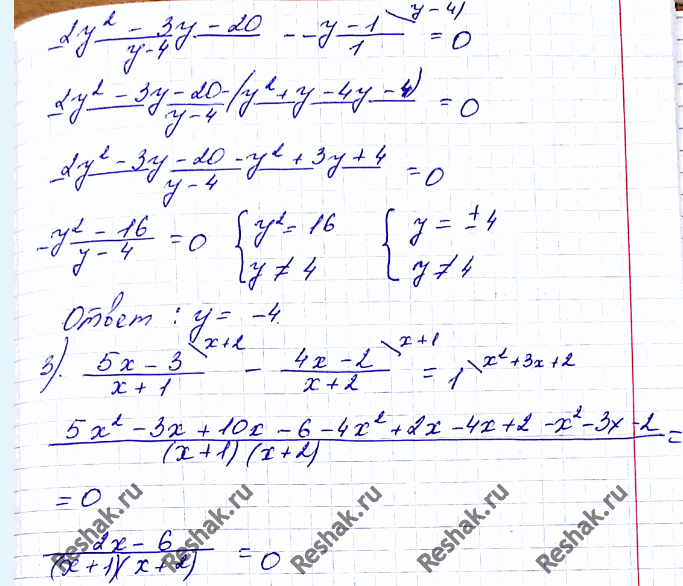 (2y² - 3y - 20)/(y - 4) - (y - 1)/1 \y - 4) = 0
(2y² - 3y - 20 - (y² + y - 4y - 4))/(y - 4) = 0
(2y² - 3y - 20 - y² + 3y + 4)/(y - 4) = 0
(y² - 16)/(y - 4) = 0 { y² = 16 { y = ±4
y ≠ 4 y ≠ 4
Ответ : y = -4.
3). (5x - 3)/(x + 1) \x+2 - (4x - 2)/(x + 2) \x+1 = 1 \x²+3x+2
(5x² - 3x + 10x - 6 - 4x² + 2x - 4x + 2 - x² - 3x - 2)/((x+1)(x+2)) =
= 0
(2x - 6)/((x+1)(x+2)) = 0
Reshak.ru Reshak.ru Reshak.ru Reshak.ru Reshak.ru